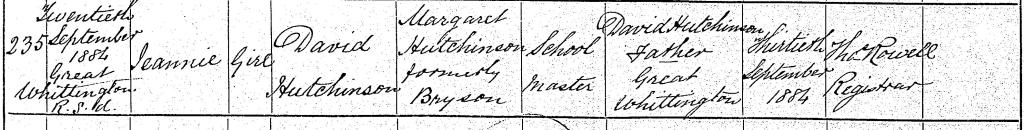 235
Twentieth
September
1884
Great
Whittington
R.S.d.
Jeannie
Girl
David
Hutchinson
Margaret
Hutchinson
formerly
Bryson
School
Master
David Hutchinson
Father
Great
Whittington
Thirtieth
September
1884
Thos Rowell
Registrar